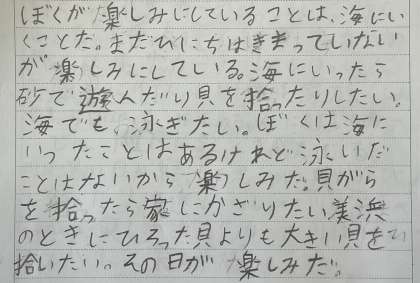 ぼくが楽しみにしていることは、海にい
くことだ。まだひにちはきまっていない
が楽しみにしている。海にいったら
砂で遊んだり貝を拾ったりしたい。
海でも、泳ぎたい。ぼくは海に
いったことはあるけれど泳いだ
ことはないから楽しみだ。貝がら
を拾ったら家にかざりたい。美浜
のときにひろった貝よりも大きい貝をひ
拾いたい。その日が楽しみだ。